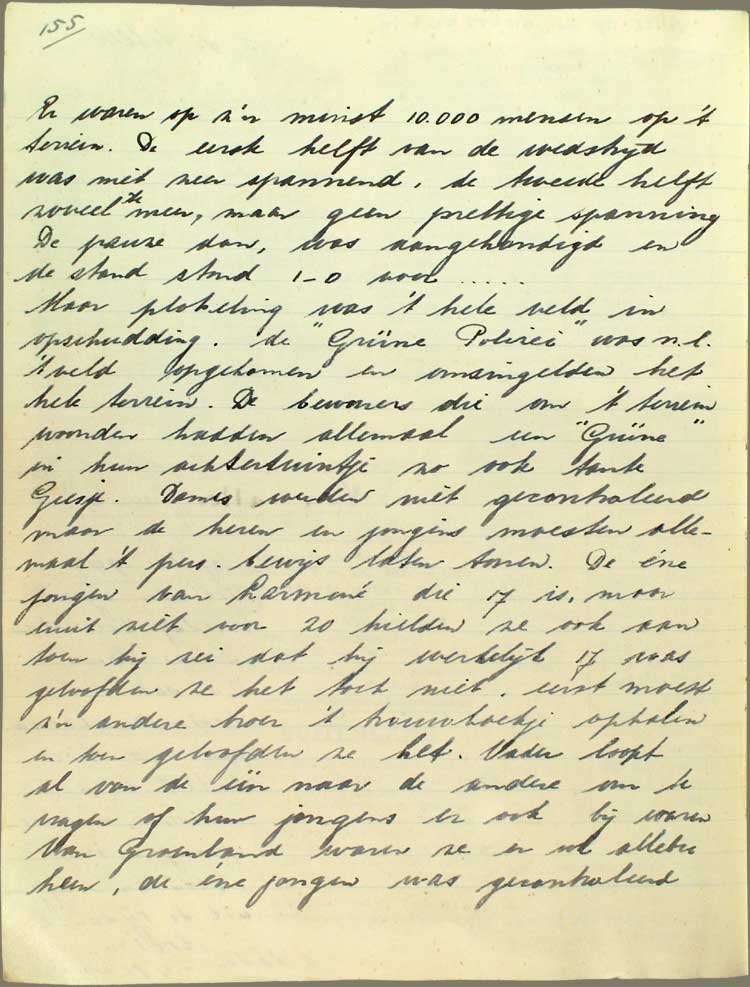 155
Er waren op z'n minst 10.000 mensen op 't
terrein. De eerste helft van de wedstrijd
was niet zeer spannend, de tweede helft
zoveel te meer, maar geen prettige spanning
De pauze dan, was aangekondigd en
de stand stond 1-0 voor .....
Maar plotseling was 't hele veld in
opschudding. de "Grüne Polizei" was n.l.
't veld opgekomen en omsingelden het
hele terrein. De bewoners die om 't terrein
woonden hadden allemaal een "Grüne"
in hun achtertuintje zo ook tante
Geesje. Dames werden niet gecontroleerd
maar de heren en jongens moesten alle-
maal 't pers. bewijs laten tonen. De éne
jongen van Harmoné die 17 is, maar
eruit ziet voor 20 hielden ze ook aan
toen hij zei dat hij werkelijk 17 was
geloofden ze het toch niet, eerst moest
z'n andere broer 't trouwboekje ophalen
en toen geloofden ze het. Vader loopt
al van de één naar de andere om te
vragen of hun jongens er ook bij waren
Van Groenland waren ze er wel allebei
heen, de éne jongen was gecontroleerd